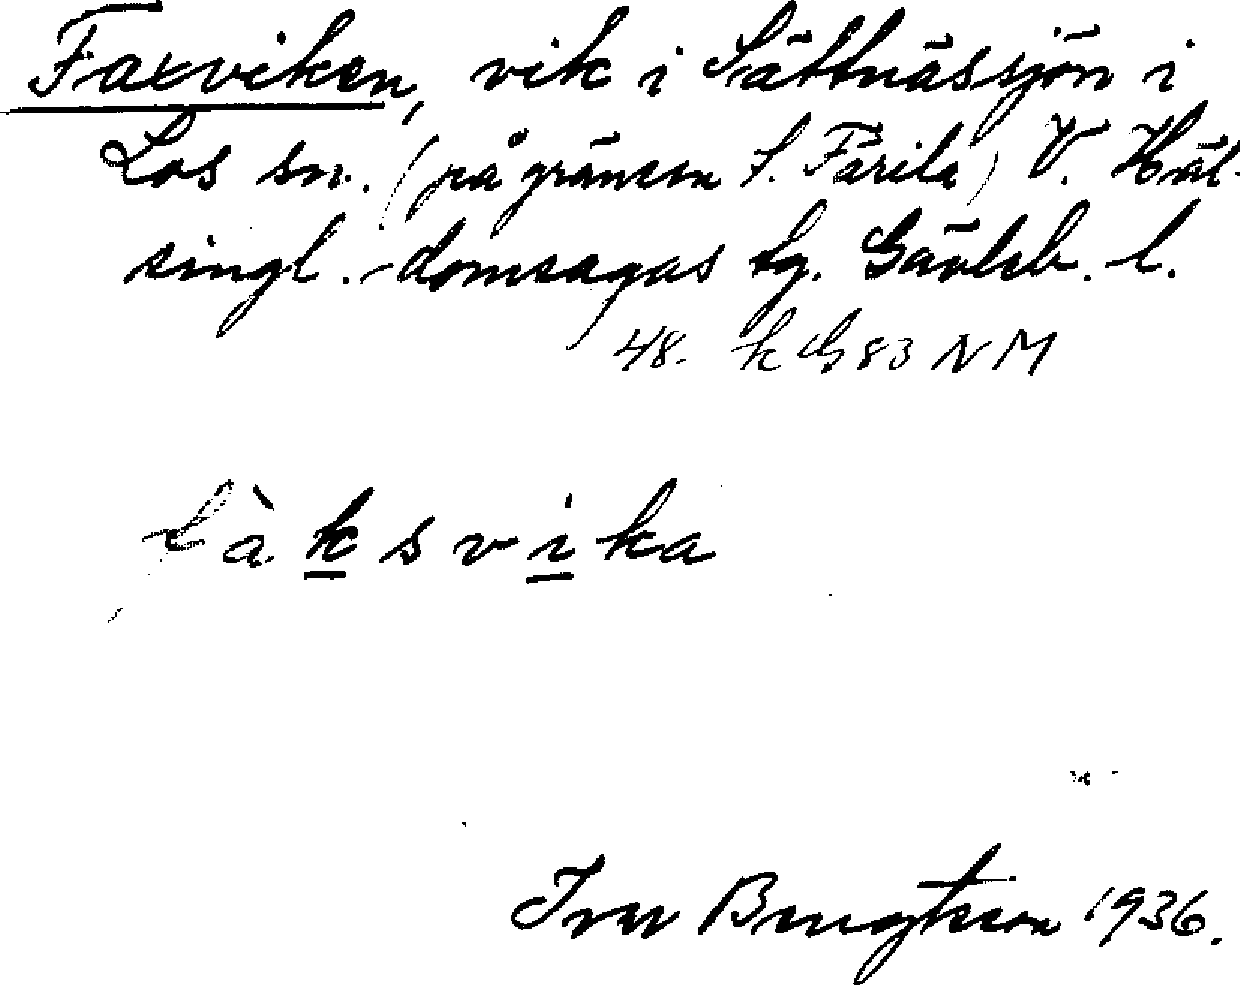 Faxviken, vik i Sättnässjön i
Los sn. (på gränsen t. Färila) V. Häl-
singl. domsagas tg. Gävleb. l.
48. k G 83 NM
fàksvika
Ivar Bengtson 1936.